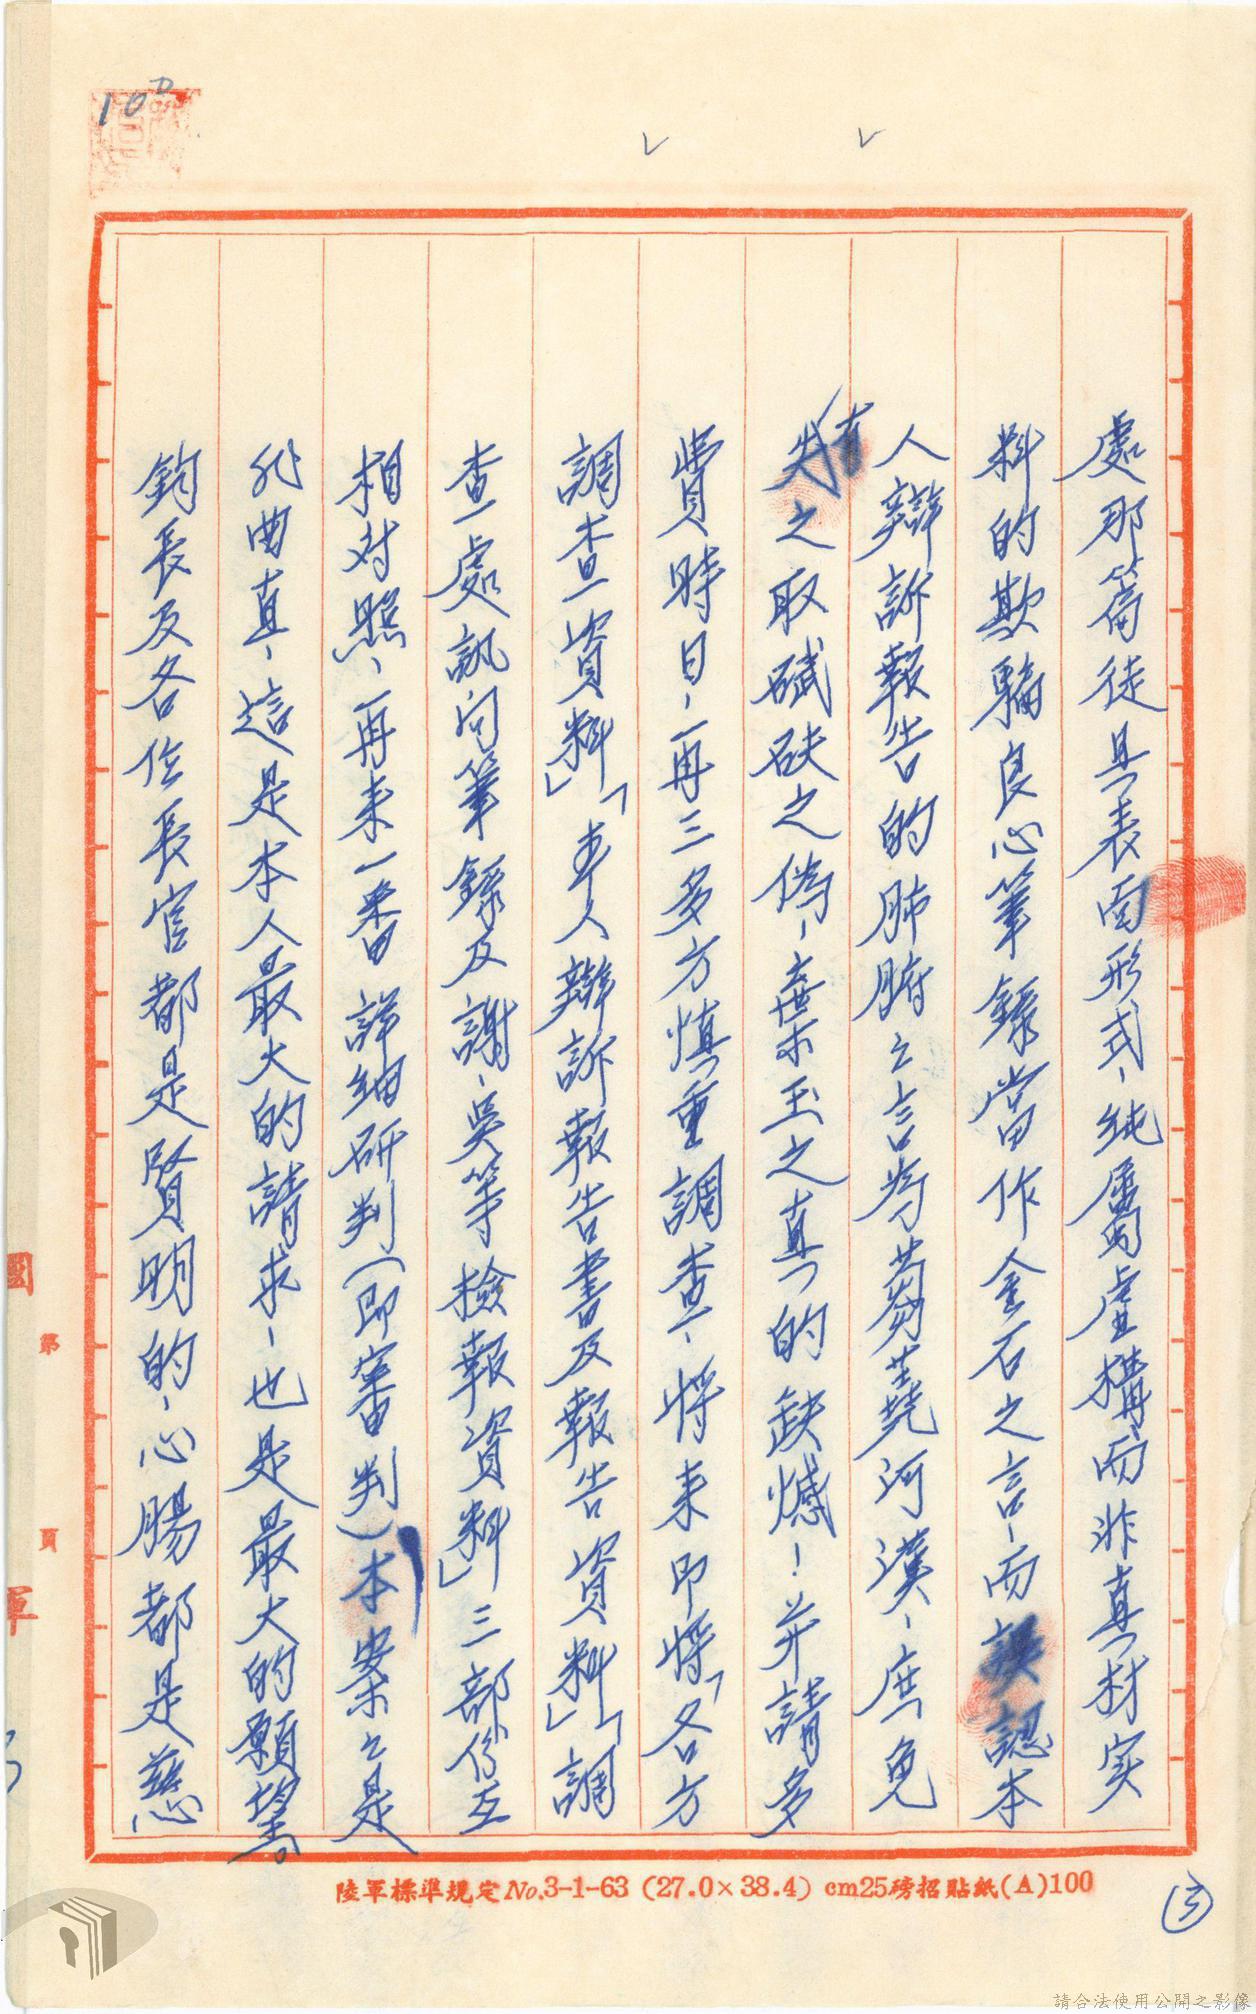 處那篇徒具表面形式、純屬虛構而非真材实
料的欺騙良心筆錄當作金石之言、而誤認本
人辯訴報告的肺腑之言為芻蕘河漢、庶免
有
失之取碔砆之偽、棄玉之真的缺憾！并請多
費時日、再三多方慎重調查、将来即将「各方
調查資料」「本人辯訴報告書及報告資料」「調
查處訊问筆錄及謝、吳等檢報資料」三部份互
相对照、再来一番詳細研判(即審判)本案之是
非曲直、這是本人最大的請求、也是最大的願望。
鈞長及各位長官都是賢明的、心腸都是慈
10D
國
第
頁
軍
陸軍標準規定No.3-1-63 (27.0×38.4) cm25磅招貼紙(A)100
③
請合法使用公開之影像